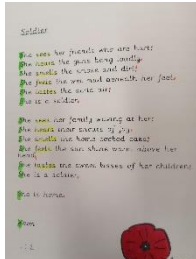 Soldier
She sees her friends who are hurt;
She hears the guns bang loudly
She smells the smoke and dirt;
She feels the wet mud beneath her feet
She tastes the acrid air;
She is a soldier.
She sees her family waving at her;
She hears their shouts of joy;
She smells the home cooked cake;
She feels the sun shine warm above her
head,
She tastes the sweet kisses of her children;
She is a soldier,
She is home.